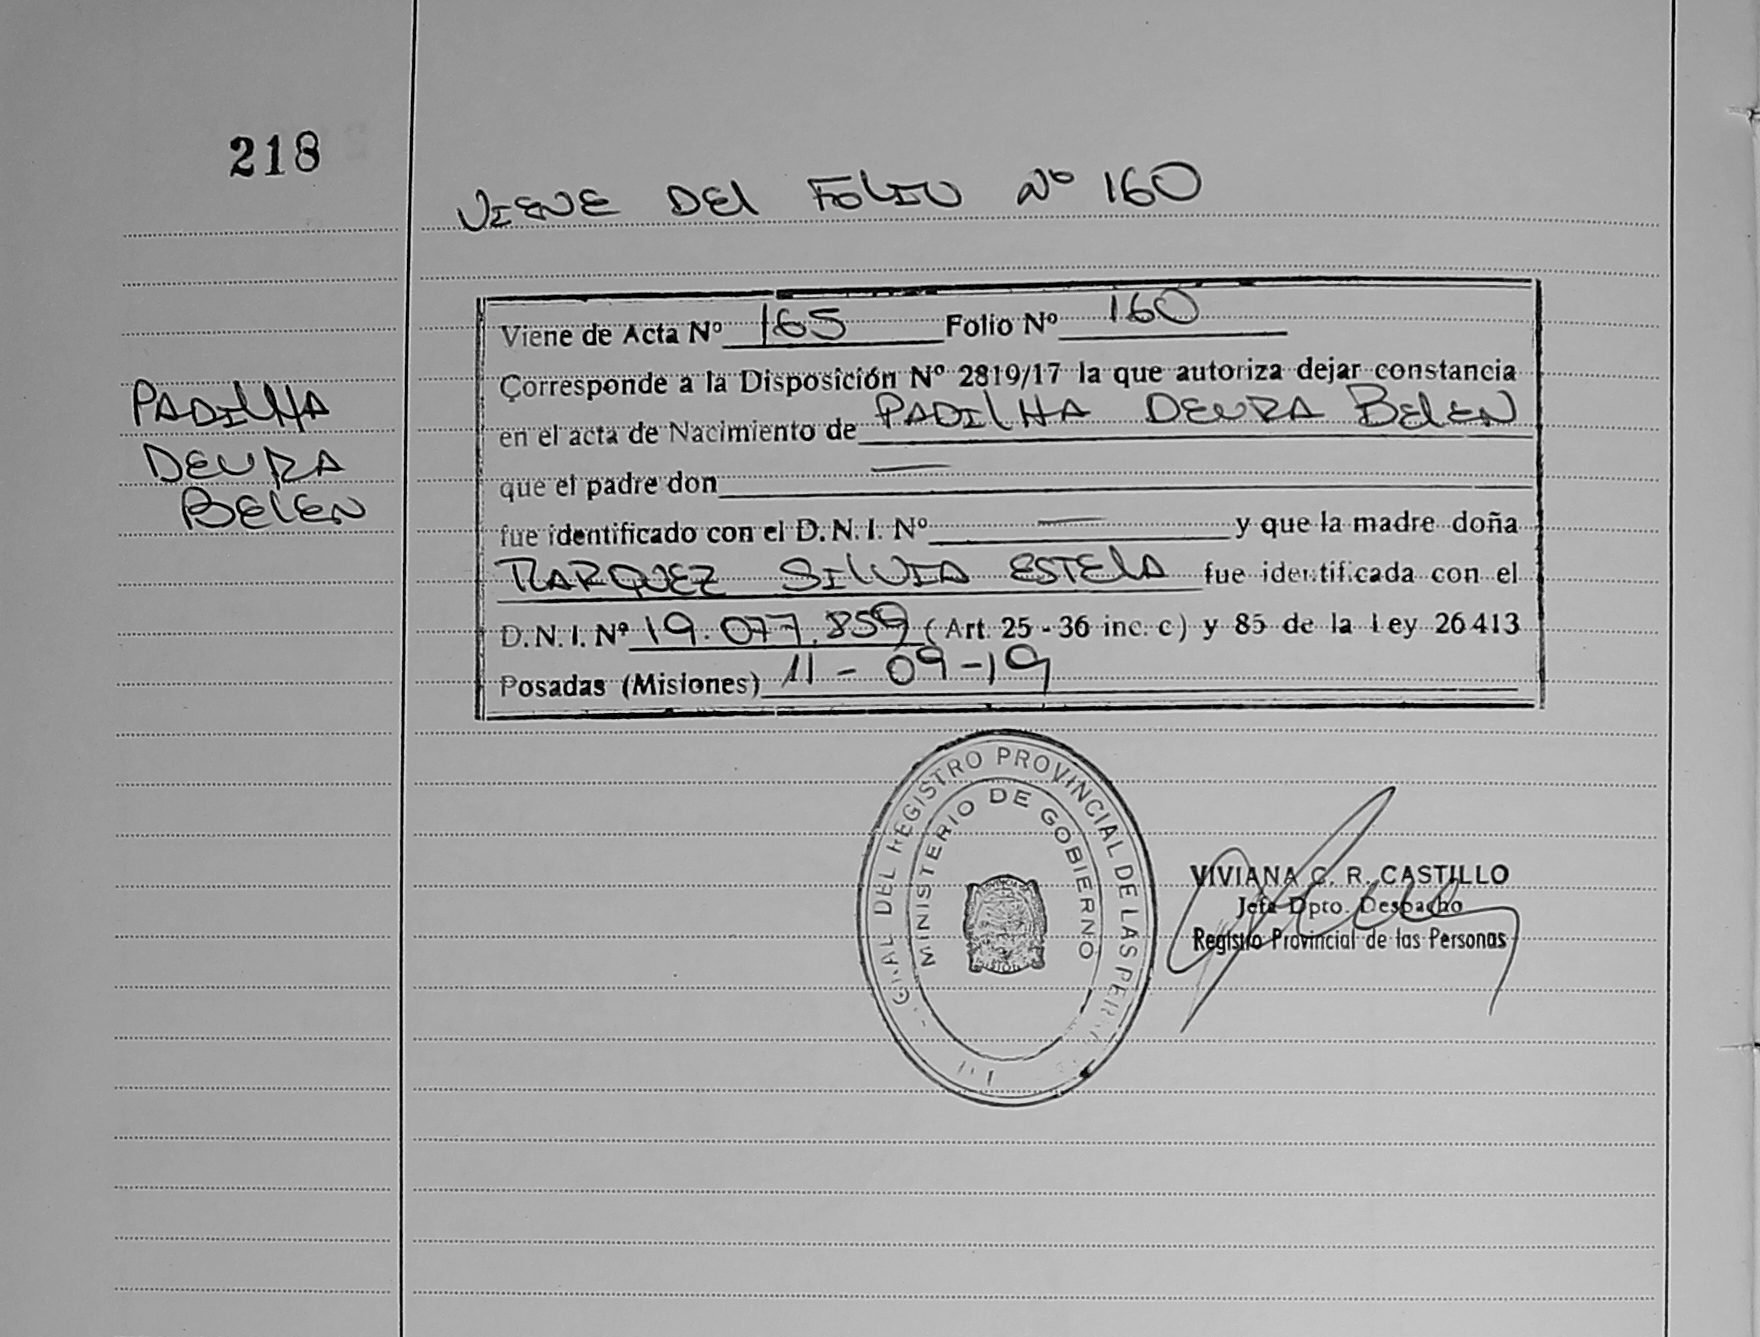 218
VIENE DEL FOLIO Nº 160
Viene de Acta Nº 165 Folio Nº 160
Corresponde a la Disposición Nº 2819/17 la que autoriza dejar constancia
en el acta de Nacimiento de PADILHA DEURA BELEN
que el padre don —
fue identificado con el D.N.I. Nº — y que la madre doña
MARQUEZ SILVIA ESTELA fue identificada con el
D.N.I. Nº 19.077.859 (Art. 25 - 36 inc. c) y 85 de la Ley 26413
Posadas (Misiones) 11-09-19
PADILHA
DEURA
BELEN
REGISTRO PROVINCIAL DE LAS
MINISTERIO DE GOBIERNO
VIVIANA C. R. CASTILLO
Jefa Dpto. Despacho
Registro Provincial de las Personas